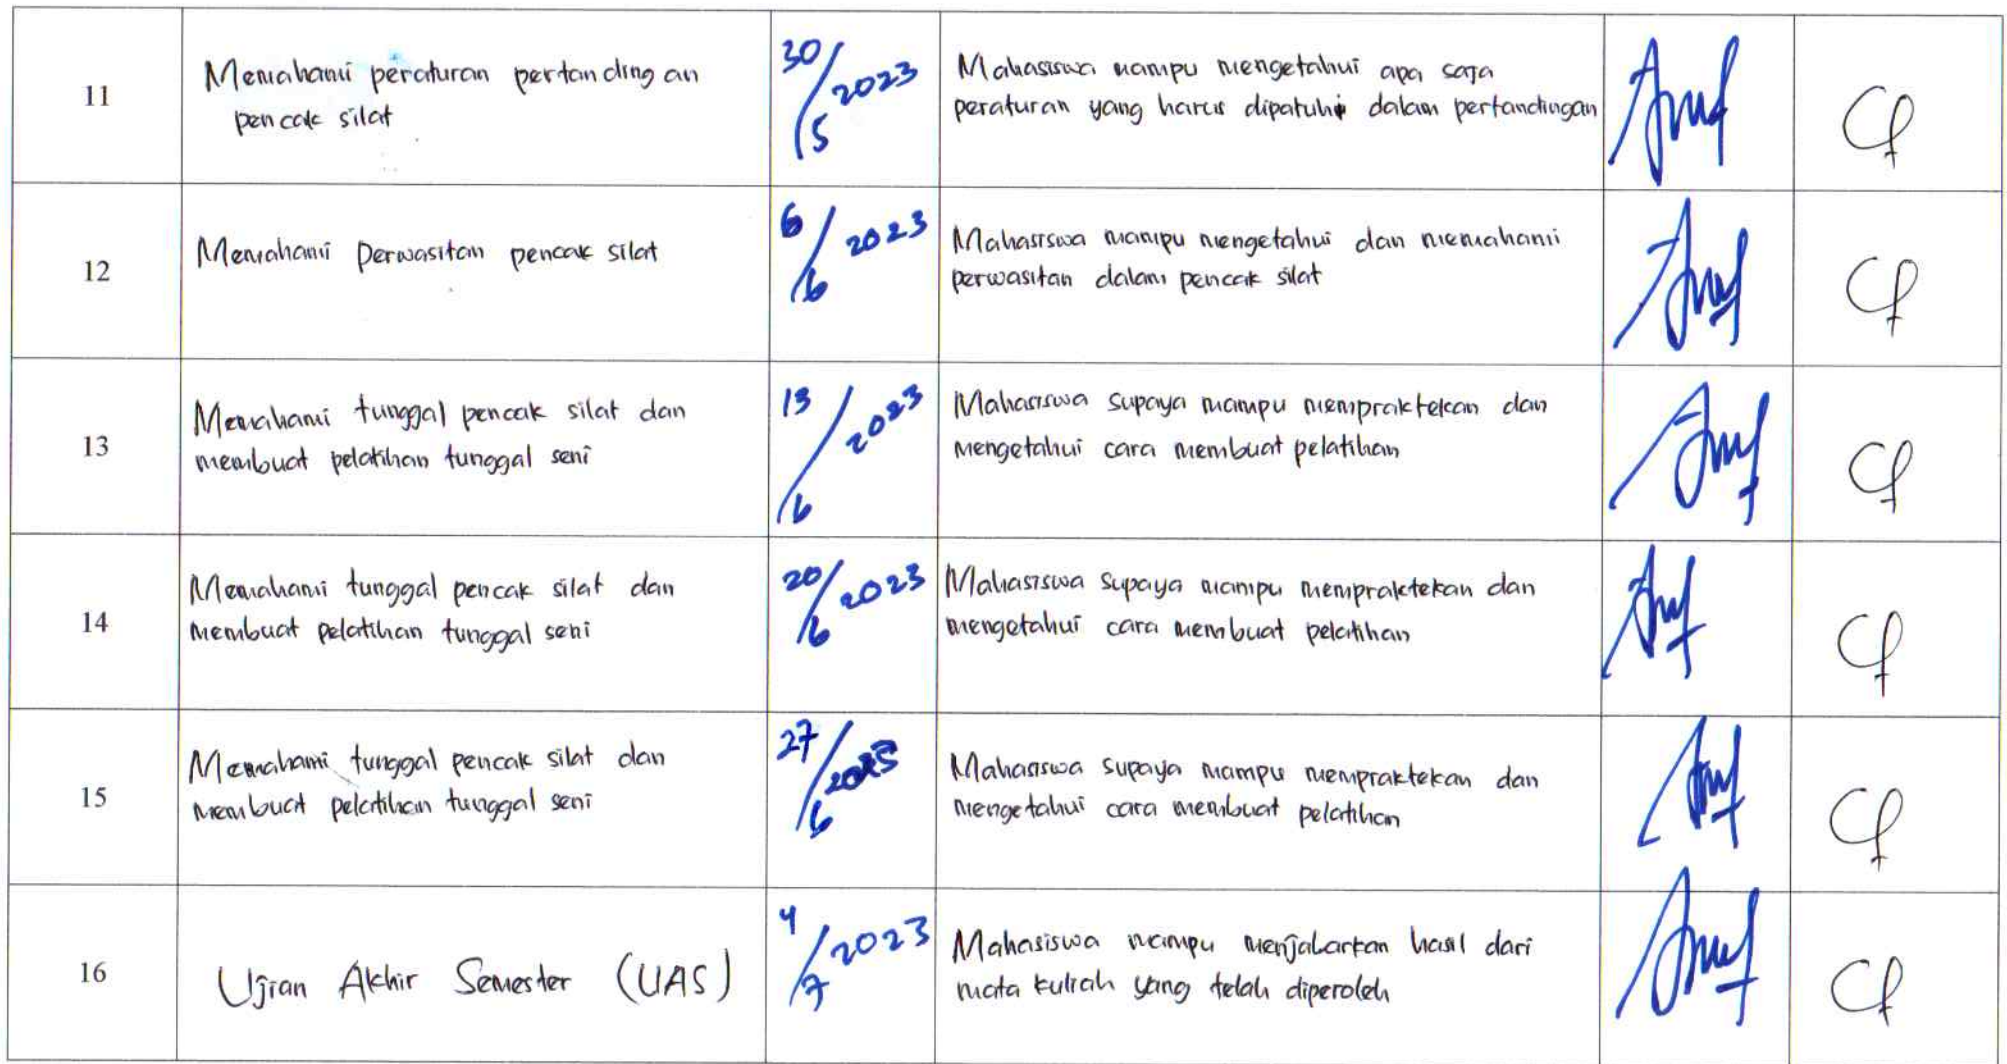 11
Memahami peraturan pertandingan
pencak silat
30/5 2023
Mahasiswa mampu mengetahui apa saja
peraturan yang harus dipatuhi dalam pertandingan
12
Memahami Perwasitan pencak silat
6/6 2023
Mahasiswa mampu mengetahui dan memahami
perwasitan dalam pencak silat
13
Memahami tunggal pencak silat dan
membuat pelatihan tunggal seni
13/6 2023
Mahasiswa supaya mampu mempraktekan dan
mengetahui cara membuat pelatihan
14
Memahami tunggal pencak silat dan
membuat pelatihan tunggal seni
20/6 2023
Mahasiswa supaya mampu mempraktekan dan
mengetahui cara membuat pelatihan
15
Memahami tunggal pencak silat dan
membuat pelatihan tunggal seni
27/6 2023
Mahasiswa supaya mampu mempraktekan dan
mengetahui cara membuat pelatihan
16
Ujian Akhir Semester (UAS)
4/7 2023
Mahasiswa mampu menjabarkan hasil dari
mata kuliah yang telah diperoleh